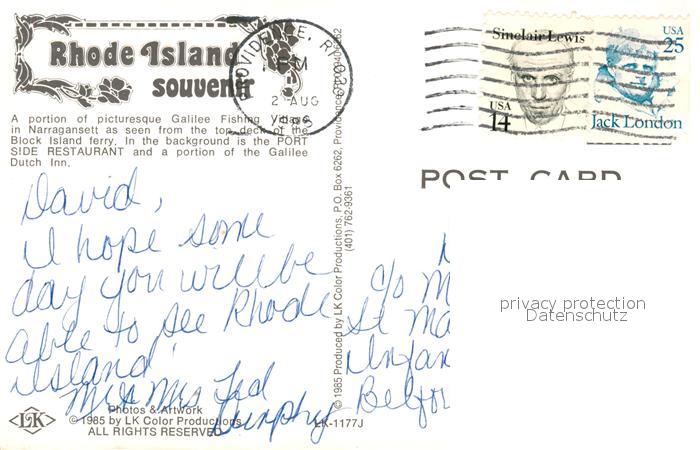 Rhode Island
souvenir
A portion of picturesque Galilee Fishing Village
in Narragansett as seen from the top deck of the
Block Island ferry. In the background is the PORT
SIDE RESTAURANT and a portion of the Galilee
Dutch Inn.
PROVIDENCE, RI
PM
2 AUG
Sinclair Lewis
USA
14
USA
25
Jack London
POST CARD
David,
I hope some
day you will be
able to see Rhode
Island.
Mr & Mrs Ted
Dunphy
Photos & Artwork
© 1985 by LK Color Productions
ALL RIGHTS RESERVED
LK
LK-1177J
© 1985 Produced by LK Color Productions, P.O. Box 6262, Providence,
(401) 762-9361
c/o M
St Ma
Infan
Belfor
privacy protection
Datenschutz